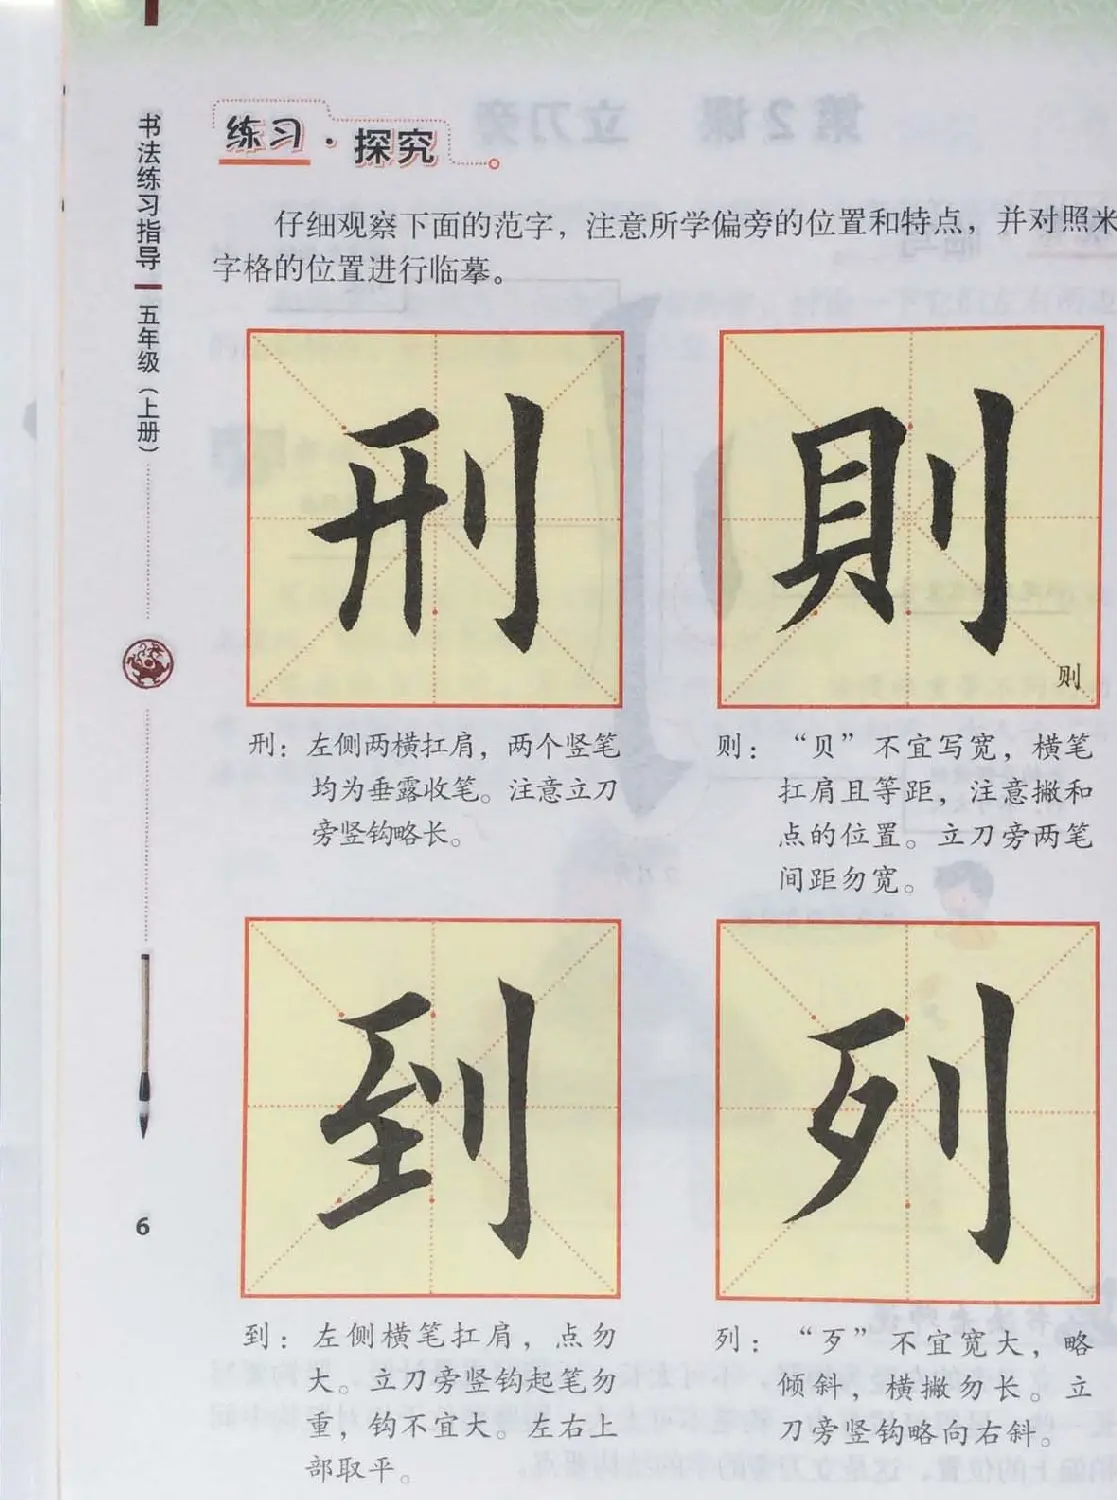 书法练习指导
五年级（上册）
6
练习·探究
仔细观察下面的范字，注意所学偏旁的位置和特点，并对照米
字格的位置进行临摹。
刑
則
则
刑：左侧两横扛肩，两个竖笔
均为垂露收笔。注意立刀
旁竖钩略长。
则：“贝”不宜写宽，横笔
扛肩且等距，注意撇和
点的位置。立刀旁两笔
间距勿宽。
到
列
到：左侧横笔扛肩，点勿
大。立刀旁竖钩起笔勿
重，钩不宜大。左右上
部取平。
列：“歹”不宜宽大，略
倾斜，横撇勿长。立
刀旁竖钩略向右斜。